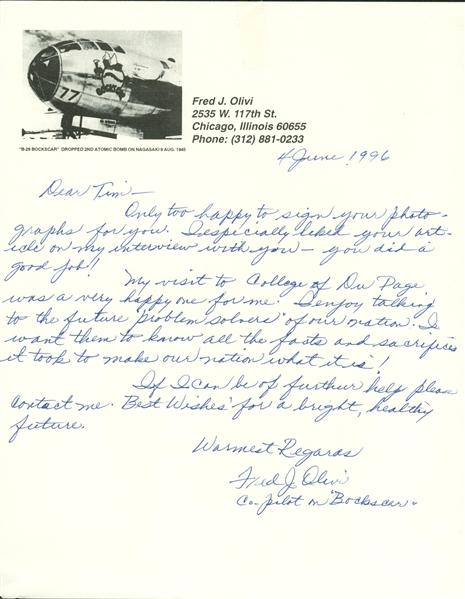 77
"B-29 BOCKSCAR" DROPPED 2ND ATOMIC BOMB ON NAGASAKI 9 AUG. 1945
Fred J. Olivi
2535 W. 117th St.
Chicago, Illinois 60655
Phone: (312) 881-0233
4 June 1996
Dear Tim—
Only too happy to sign your photo-
graphs for you. I especially liked your art-
icle on my interview with you — you did a
good job!
My visit to College of Du Page
was a very happy one for me. I enjoy talking
to the future "problem solvers" of our nation. I
want them to know all the facts and sacrifices
it took to make our nation what it is!
If I can be of further help please
contact me. Best Wishes for a bright, healthy
future.
Warmest Regards
Fred J. Olivi
Co-pilot on "Bockscar"